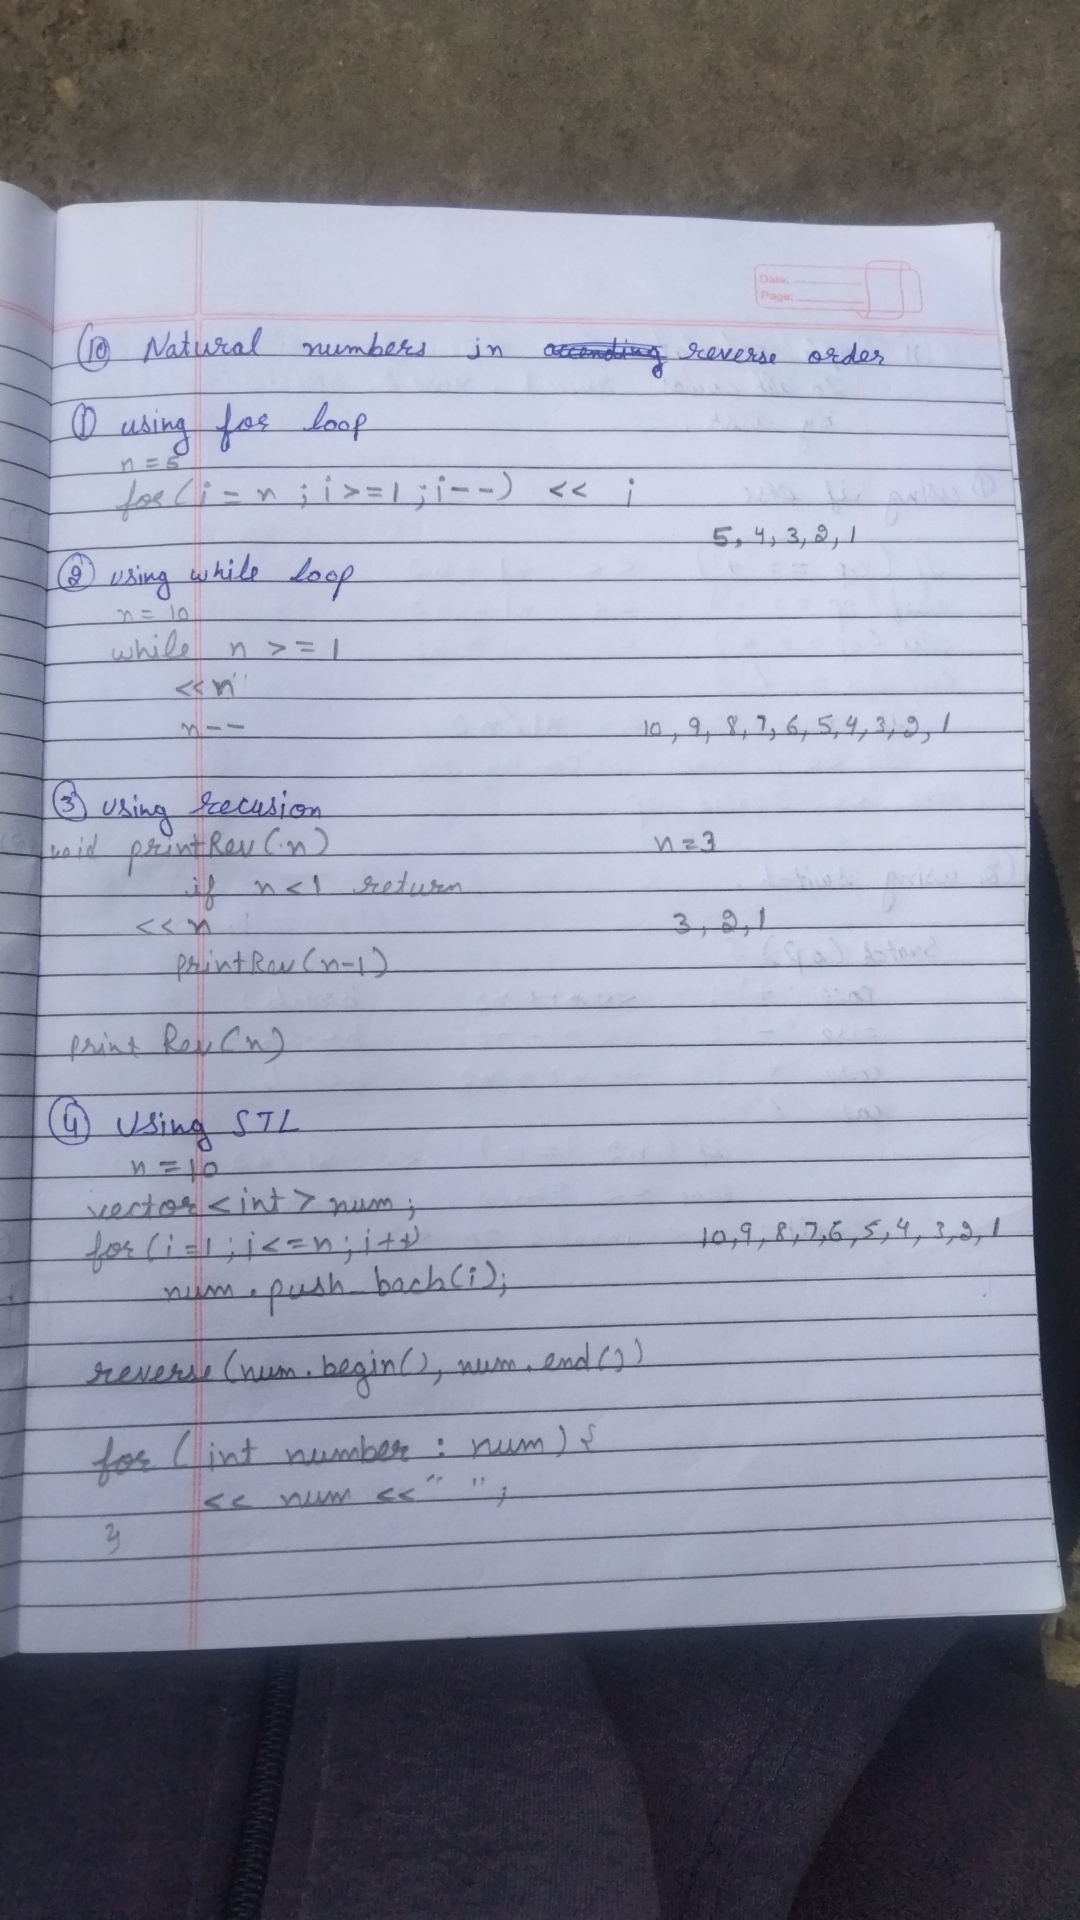 Date:
Page:
⑩ Natural numbers in accending reverse order
① using for loop
n = 5
for (i = n ; i >= 1 ; i--) << i
5, 4, 3, 2, 1
② using while loop
n = 10
while n >= 1
<< n
n--
10, 9, 8, 7, 6, 5, 4, 3, 2, 1
③ using recusion
void printRev (n) n = 3
if n < 1 return
<< n 3, 2, 1
printRev (n-1)
print Rev (n)
④ Using STL
n = 10
vector <int> num ;
for (i = 1 ; i <= n ; i++) 10, 9, 8, 7, 6, 5, 4, 3, 2, 1
num . push_back (i) ;
reverse (num . begin () , num . end ())
for ( int number : num ) {
<< num << " " ;
}